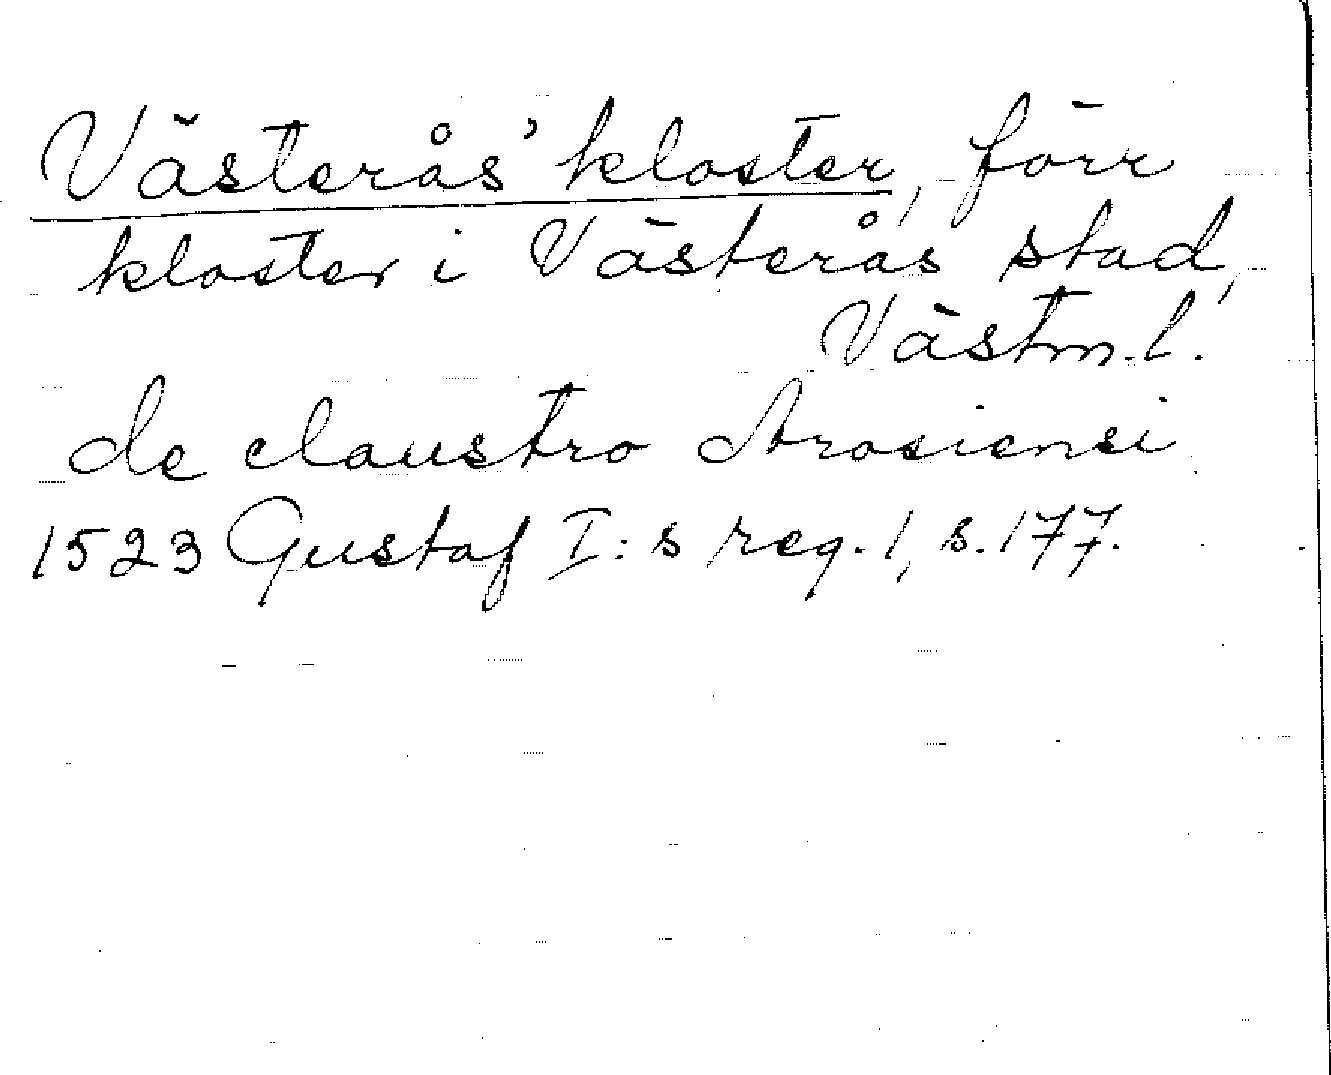 Västerås' kloster, förr
kloster i Västerås stad,
Västm.l.
de claustro Arosiensi
1523 Gustaf I:s reg. 1, s. 177.